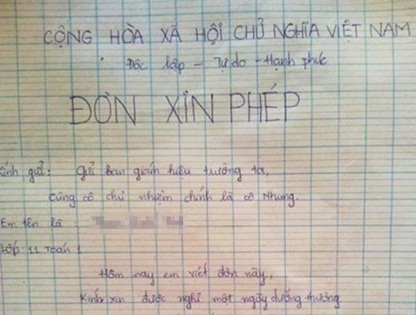 CỘNG HÒA XÃ HỘI CHỦ NGHĨA VIỆT NAM
Độc lập - Tự do - Hạnh phúc
ĐƠN XIN PHÉP
Kính gửi: Gửi ban giám hiệu trường ta,
Cùng cô chủ nhiệm chính là cô Nhung.
Em tên là
Lớp 11 Toán 1
Hôm nay em viết đơn này,
Kính xin được nghỉ một ngày dưỡng thương